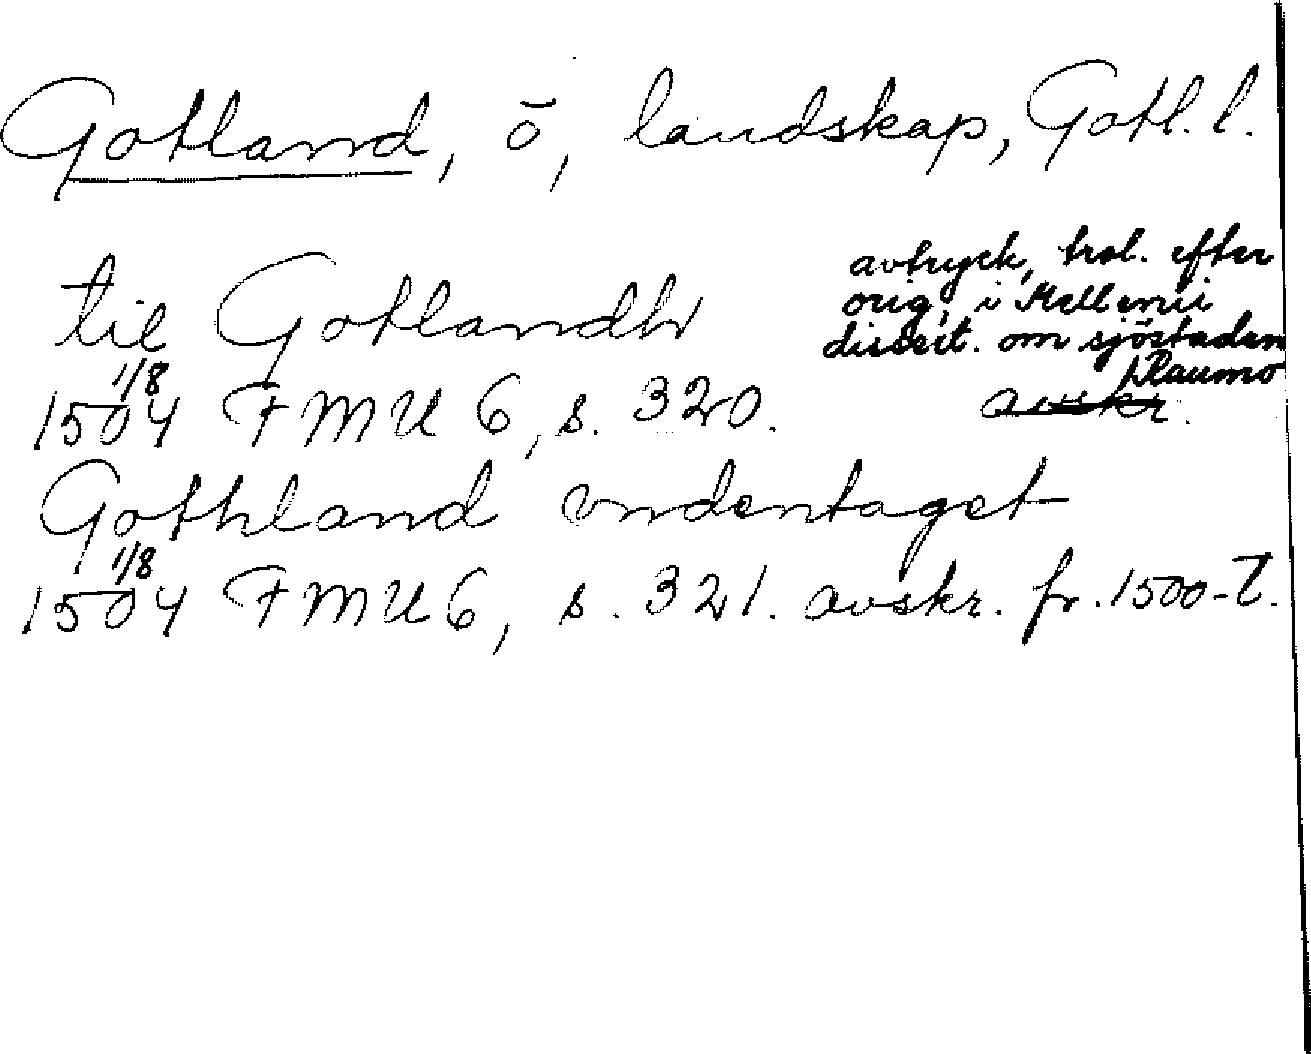 Gotland, ö, landskap, Gotl. l.
til Gotlandh
avtryck, trol. efter
orig. i Mellenii
dissert. om sjöstaden
Raumo
1504 1/8 FMU 6, s. 320. avskr.
Gothland vndentaget
1504 1/8 FMU 6, s. 321. avskr. fr. 1500-t.